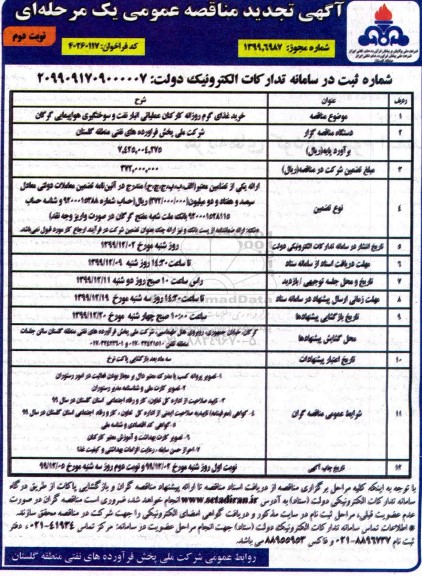 آگهی تجدید مناقصه عمومی یک مرحله‌ای
نوبت دوم
شماره مجوز: ۱۳۹۹.۶۹۸۷
کد فراخوان: ۴۰۲۶۰۱۱۷
شماره ثبت در سامانه تدارکات الکترونیک دولت: ۲۰۹۹۰۹۱۷۰۹۰۰۰۰۰۷
ردیف عنوان شرح
۱ موضوع مناقصه خرید غذای گرم روزانه کارکنان عملیاتی انبار نفت و سوختگیری هواپیمایی گرگان
۲ دستگاه مناقصه گزار شرکت ملی پخش فرآورده های نفتی منطقه گلستان
برآورد پایه(ریال) ۷,۴۲۵,۰۰۴,۲۷۵
۳ مبلغ تضمین شرکت در مناقصه(ریال) ۳۷۲,۰۰۰,۰۰۰
۴ نوع تضمین ارائه یکی از تضامین معتبر(الف،ب،پ،ج،چ،ح) مندرج در آئین‌نامه تضمین معاملات دولتی معادل
سیصد و هفتاد و دو میلیون(۳۷۲/۰۰۰/۰۰۰)ریال(حساب شماره ۹۲۰۰۰۱۵۳۸۸ و شناسه حساب
۹۲۰۰۰۱۵۳۸۱۱۵ بانک ملت شعبه مفتح گرگان در صورت واریز وجه نقد)
۵ تاریخ انتشار در سامانه تدارکات الکترونیکی دولت روز شنبه مورخ ۱۳۹۹/۱۲/۰۲
۶ مهلت دریافت اسناد از سامانه ستاد تا ساعت ۱۴:۳۰ روز شنبه ۱۳۹۹/۱۲/۰۹
۷ تاریخ و محل جلسه توجیهی / بازدید راس ساعت ۱۰ صبح روز دو شنبه ۱۳۹۹/۱۲/۱۱
۸ مهلت زمانی ارسال پیشنهاد در سامانه ستاد تا ساعت ۱۴:۳۰ روز سه شنبه مورخ ۱۳۹۹/۱۲/۱۹
۹ تاریخ بازگشایی پیشنهادها ساعت ۱۰:۰۰ صبح چهار شنبه مورخ ۱۳۹۹/۱۲/۲۰
محل گشایش پیشنهادها گرگان، خیابان جمهوری، روبروی هتل طهماسبی، شرکت ملی پخش فرآورده های نفتی منطقه گلستان سالن جلسات
۱۰ تاریخ اعتبار پیشنهادات سه ماه بعد بازگشایی پاکت نرخ
۱۱ شرایط عمومی مناقصه گران
۱- تصویر پروانه کسب یا مدرک معتبر دال بر مجاز بودن فعالیت در امور رستوران
۲- تصویر کارت ملی و شناسنامه مدیر رستوران
۳- تایید صلاحیت از اداره کل تعاون، کار و رفاه اجتماعی استان گلستان در سال ۹۹
۵- گواهی کد اقتصادی و شناسه ملی
۶- تصویر کارت بهداشت و آموزش معتبر کارکنان
۱۲ تاریخ چاپ آگهی نوبت اول روز شنبه مورخ ۹۹/۱۲/۰۲ و نوبت دوم روز سه شنبه مورخ ۹۹/۱۲/۰۵
با توجه به اینکه کلیه مراحل برگزاری مناقصه از دریافت اسناد مناقصه تا ارائه پیشنهاد مناقصه گران و بازگشایی پاکات از طریق درگاه
سامانه تدارکات الکترونیکی دولت (ستاد) به آدرس www.setadiran.ir انجام خواهد شد، ضروری است مناقصه گران در صورت
عدم عضویت قبلی، مراحل ثبت نام در سایت مذکور و دریافت گواهی امضای الکترونیکی را جهت شرکت در مناقصه محقق سازند.
* اطلاعات تماس سامانه تدارکات الکترونیک دولت (ستاد) جهت انجام مراحل عضویت در سامانه: مرکز تماس ۴۱۹۳۴-۰۲۱ دفتر
ثبت نام ۸۸۹۶۷۳۷-۰۲۱ و فاکس ۸۸۹۵۵۹۵۳ می باشد.
روابط عمومی شرکت ملی پخش فرآورده های نفتی منطقه گلستان